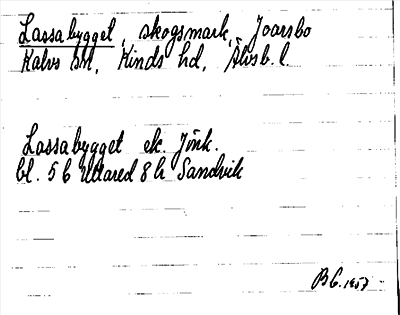 Lassabygget, skogsmark, Joarsbo
Kalvs sn, Kinds hd, Älvsb. l.
Lassabygget ek. Jönk.
bl. 56 Uttared 8 h Sandvik
BG. 1957